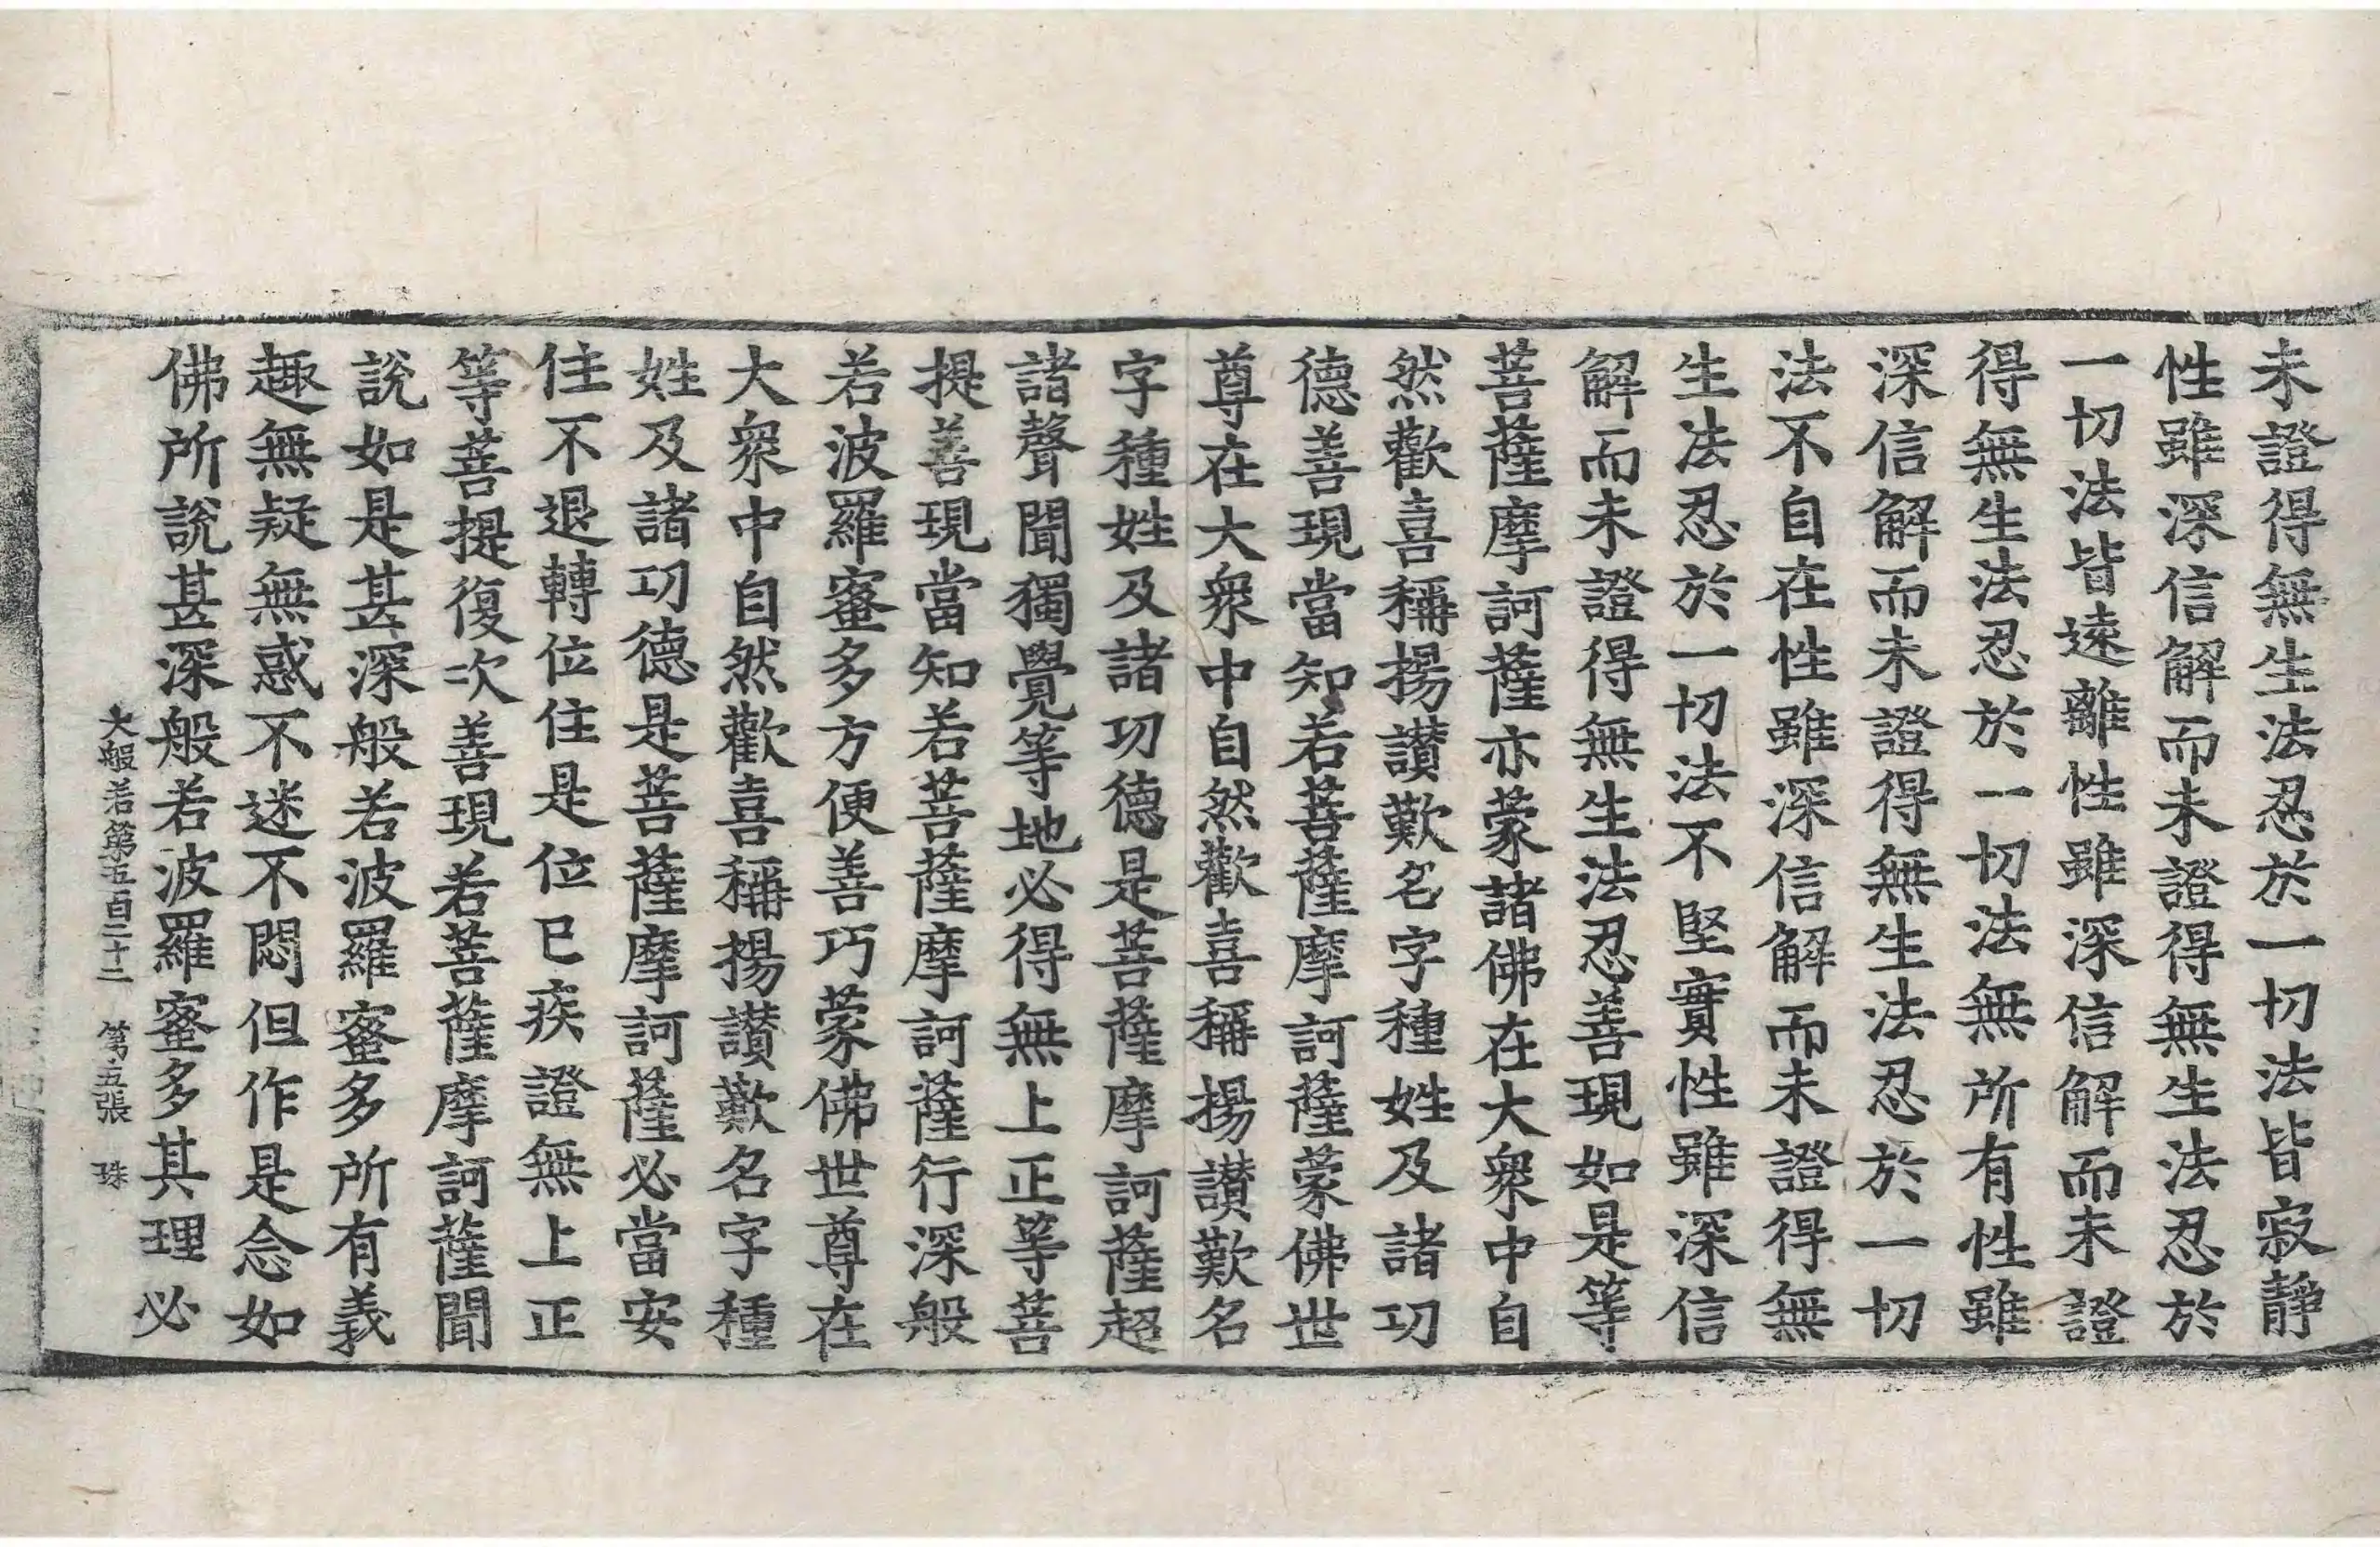 未證得無生法忍於一切法皆寂靜
性雖深信解而未證得無生法忍於
一切法皆遠離性雖深信解而未證
得無生法忍於一切法無所有性雖
深信解而未證得無生法忍於一切
法不自在性雖深信解而未證得無
生法忍於一切法不堅實性雖深信
解而未證得無生法忍善現如是等
菩薩摩訶薩亦蒙諸佛在大衆中自
然歡喜稱揚讃歎名字種姓及諸功
德善現當知若菩薩摩訶薩蒙佛世
尊在大衆中自然歡喜稱揚讃歎名
字種姓及諸功德是菩薩摩訶薩超
諸聲聞獨覺等地必得無上正等菩
提善現當知若菩薩摩訶薩行深般
若波羅蜜多方便善巧蒙佛世尊在
大衆中自然歡喜稱揚讃歎名字種
姓及諸功德是菩薩摩訶薩必當安
住不退轉位住是位已疾證無上正
等菩提復次善現若菩薩摩訶薩聞
說如是甚深般若波羅蜜多所有義
趣無疑無惑不迷不悶但作是念如
佛所說甚深般若波羅蜜多其理必
大般若第五百二十二 第五張 珠